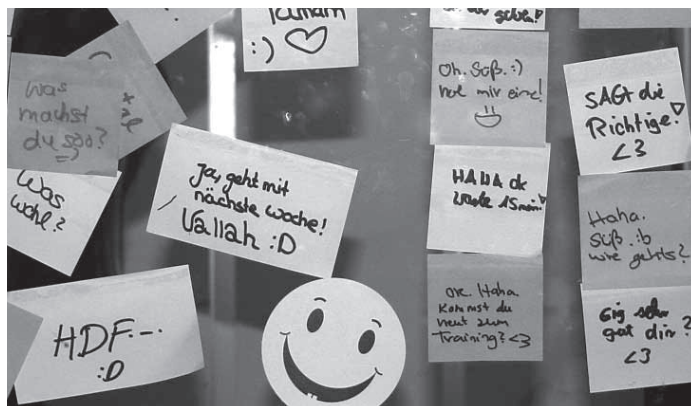 :) ♡
Was
machst
du soo?
=)
Was
wohl?
Ja, geht mit
nächste woche!
Vallah :D
HDF.-.
:D
Oh. Süß. :)
hol mir eine!
HAHA ok
15min
OK. Haha.
Kommst du
heut zum
Training? <3
SAGt die
Richtige!
<3
Haha.
süß. :b
wie gehts?
sehr
gut dir?
<3